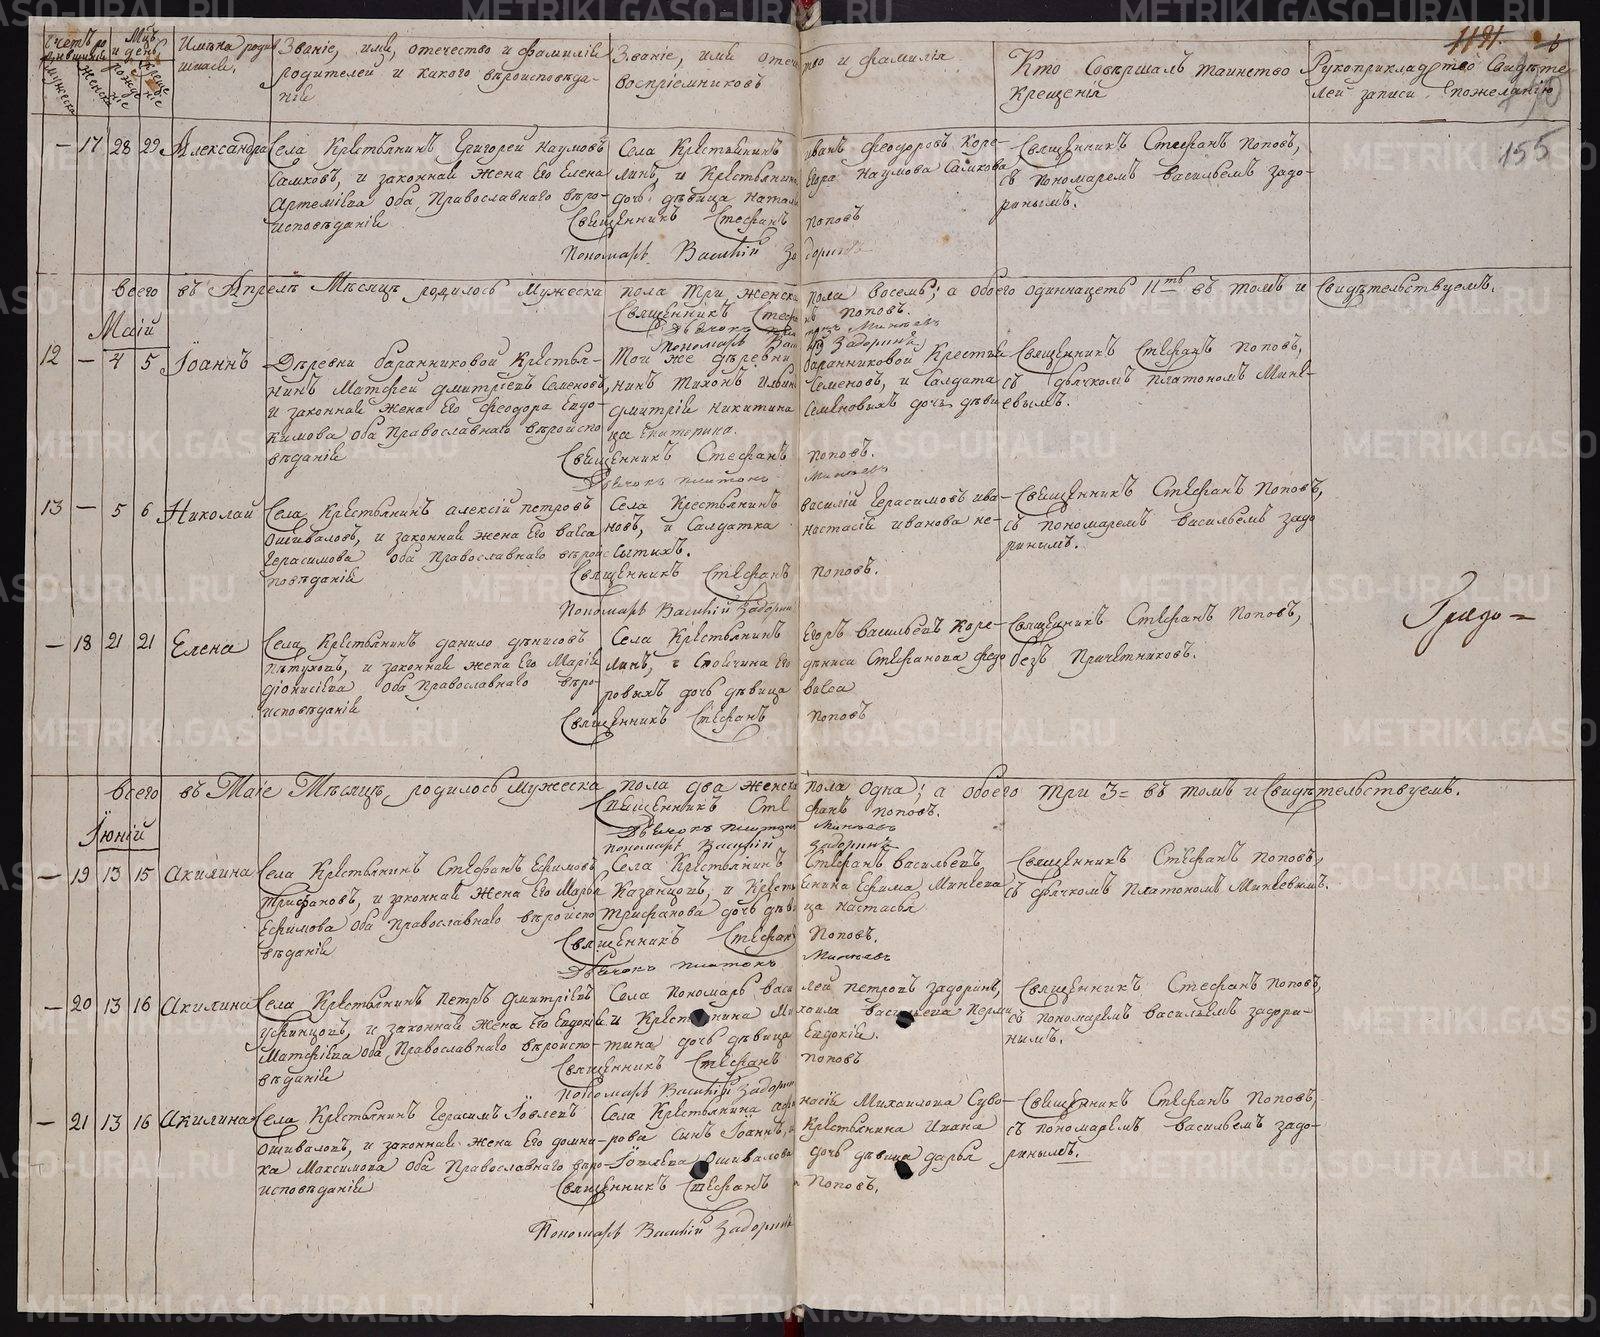 Счетъ родившихся
Мужеска
Женска
Мцъ и день
рожденіе
крещеніе
Имѣна родившихся,
Званіе, имя, отечество и фамилія
родителей и какого вѣроисповѣда-
нія
Званіе, имя, отечество и фамилія
воспріемниковъ
Кто Совершалъ таинство
Крещенія
Рукоприкладство Свидѣте
лей записи пожеланію
155
— 17 28 29 Александра
Села Крестьянинъ Григорей Наумовъ
Самковъ, и законная жена Его Елена
Артемиева оба Православнаго вѣро-
исповѣданія
Села Крестьянинъ Иванъ Феодоровъ Коре-
линъ, и Крестьянина Егора Наумова Самкова
дочь дѣвица Наталья
Священникъ Стефанъ Поповъ,
съ Пономаремъ Васильемъ Задо-
ринымъ.
Священникъ Стефанъ Поповъ
Пономарь Василій Задоринъ
всего въ Апрелѣ Мѣсяцѣ родилось Мужеска пола три женска пола восемь; а обоего одиннацеть 11ть въ томъ и Свидѣтельствуемъ.
Священникъ Стефанъ Поповъ.
Дьячокъ Платонъ Минѣевъ
Пономарь Василій Задоринъ
Маій
12 — 4 5 Їоаннъ
Деревни баранниковой Крестья-
нинъ Матфей Дмитріевъ Семеновъ,
и законная жена Его Феодора Евдо-
кимова, оба Православнаго вѣроиспо
вѣданія
Той же деревни баранниковой Крестья
нинъ Тихонъ Ильинъ Семеновъ, и Салдата
Дмитрія Никитина Семеновыхъ дочь дѣви
ца Екатерина.
Священникъ Стефанъ Поповъ,
съ дьячкомъ Платономъ Минѣ-
евымъ.
Священникъ Стефанъ Поповъ.
Дьячокъ Платонъ Минѣевъ
13 — 5 6 Николай
Села Крестьянинъ Алексій Петровъ
Ошиваловъ, и законная жена Его Васса
Герасимова оба Православнаго вѣроис
повѣданія
Села Крестьянинъ Василій Герасимовъ Ива-
новъ, и Салдатка Настасія Иванова Не-
сытыхъ.
Священникъ Стефанъ Поповъ,
съ Пономаремъ Васильемъ Задо
ринымъ.
Священникъ Стефанъ Поповъ.
Пономарь Василій Задоринъ
— 18 21 21 Елена
Села Крестьянинъ Данило Денисовъ
Петуховъ, и законная жена Его Марія
Діонисіева оба Православнаго вѣро-
исповѣданія
Села Крестьянинъ Егоръ Васильевъ Коре-
линъ, Его
Дениса Стефанова Федо
ровыхъ дочь дѣвица Васса
Священникъ Стефанъ Поповъ,
безъ Причетниковъ.
Священникъ Стефанъ Поповъ
всего въ Маіе Мѣсяцѣ, родилось Мужеска пола два женска пола одна; а обоего три 3= въ томъ и Свидѣтельствуемъ.
Священникъ Стефанъ Поповъ.
Дьячокъ Платонъ Минѣевъ
Пономарь Василій Задоринъ
Їюній
— 19 13 15 Акилина
Села Крестьянинъ Стефанъ Ефимовъ
Трифановъ, и законная жена Его Марья
Ефимова оба Православнаго вѣроиспо
вѣданія
Села Крестьянинъ Стефанъ Васильевъ
Казанцовъ, и Крестьянина Ефима Минѣева
Трифанова дочь дѣвица Настасья
Священникъ Стефанъ Поповъ,
съ дьячкомъ Платономъ Минѣевымъ.
Священникъ Стефанъ Поповъ.
Дьячокъ Платонъ Минѣевъ
— 20 13 16 Акилина
Села Крестьянинъ Петръ Дмитріевъ
Уфинцовъ, и законная жена Его Евдокія
Матфіева оба Православнаго вѣроиспо-
вѣданія
Села Пономарь Василей Петровъ Задоринъ,
и Крестьянина Михаила Васильева Перми
тина дочь дѣвица Евдокія.
Священникъ Стефанъ Поповъ,
съ Пономаремъ Васильемъ Задори-
нымъ.
Священникъ Стефанъ Поповъ
Пономарь Василій Задоринъ
— 21 13 16 Акилина
Села Крестьянинъ Герасимъ Їовлевъ
Ошиваловъ, и законная жена Его Домна-
ка Максимова оба Православнаго вѣро-
исповѣданія
Села Крестьянина Афанасія Михаилова Суво-
рова сынъ Їоаннъ, и Крестьянина Ивана
Їовлева Ошивалова дочь дѣвица Дарья
Священникъ Стефанъ Поповъ,
съ пономаремъ Васильемъ Задо-
ринымъ.
Священникъ Стефанъ Поповъ.
Пономарь Василій Задоринъ
METRIKI.GASO-URAL.RU